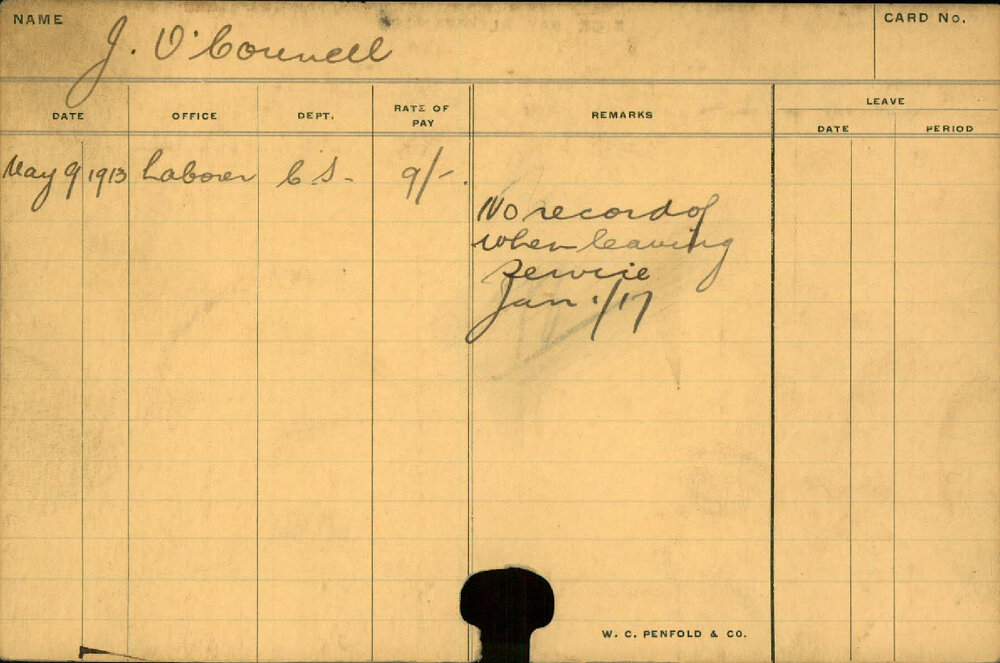 NAME
J. O'Connell
CARD No.
DATE
OFFICE
DEPT.
RATE OF PAY
REMARKS
LEAVE
DATE
PERIOD
May 9 1913 Laborer C.S- 9/-.
No record of
when leaving
Servicie
Jan. 1/17
W. C. PENFOLD & CO.